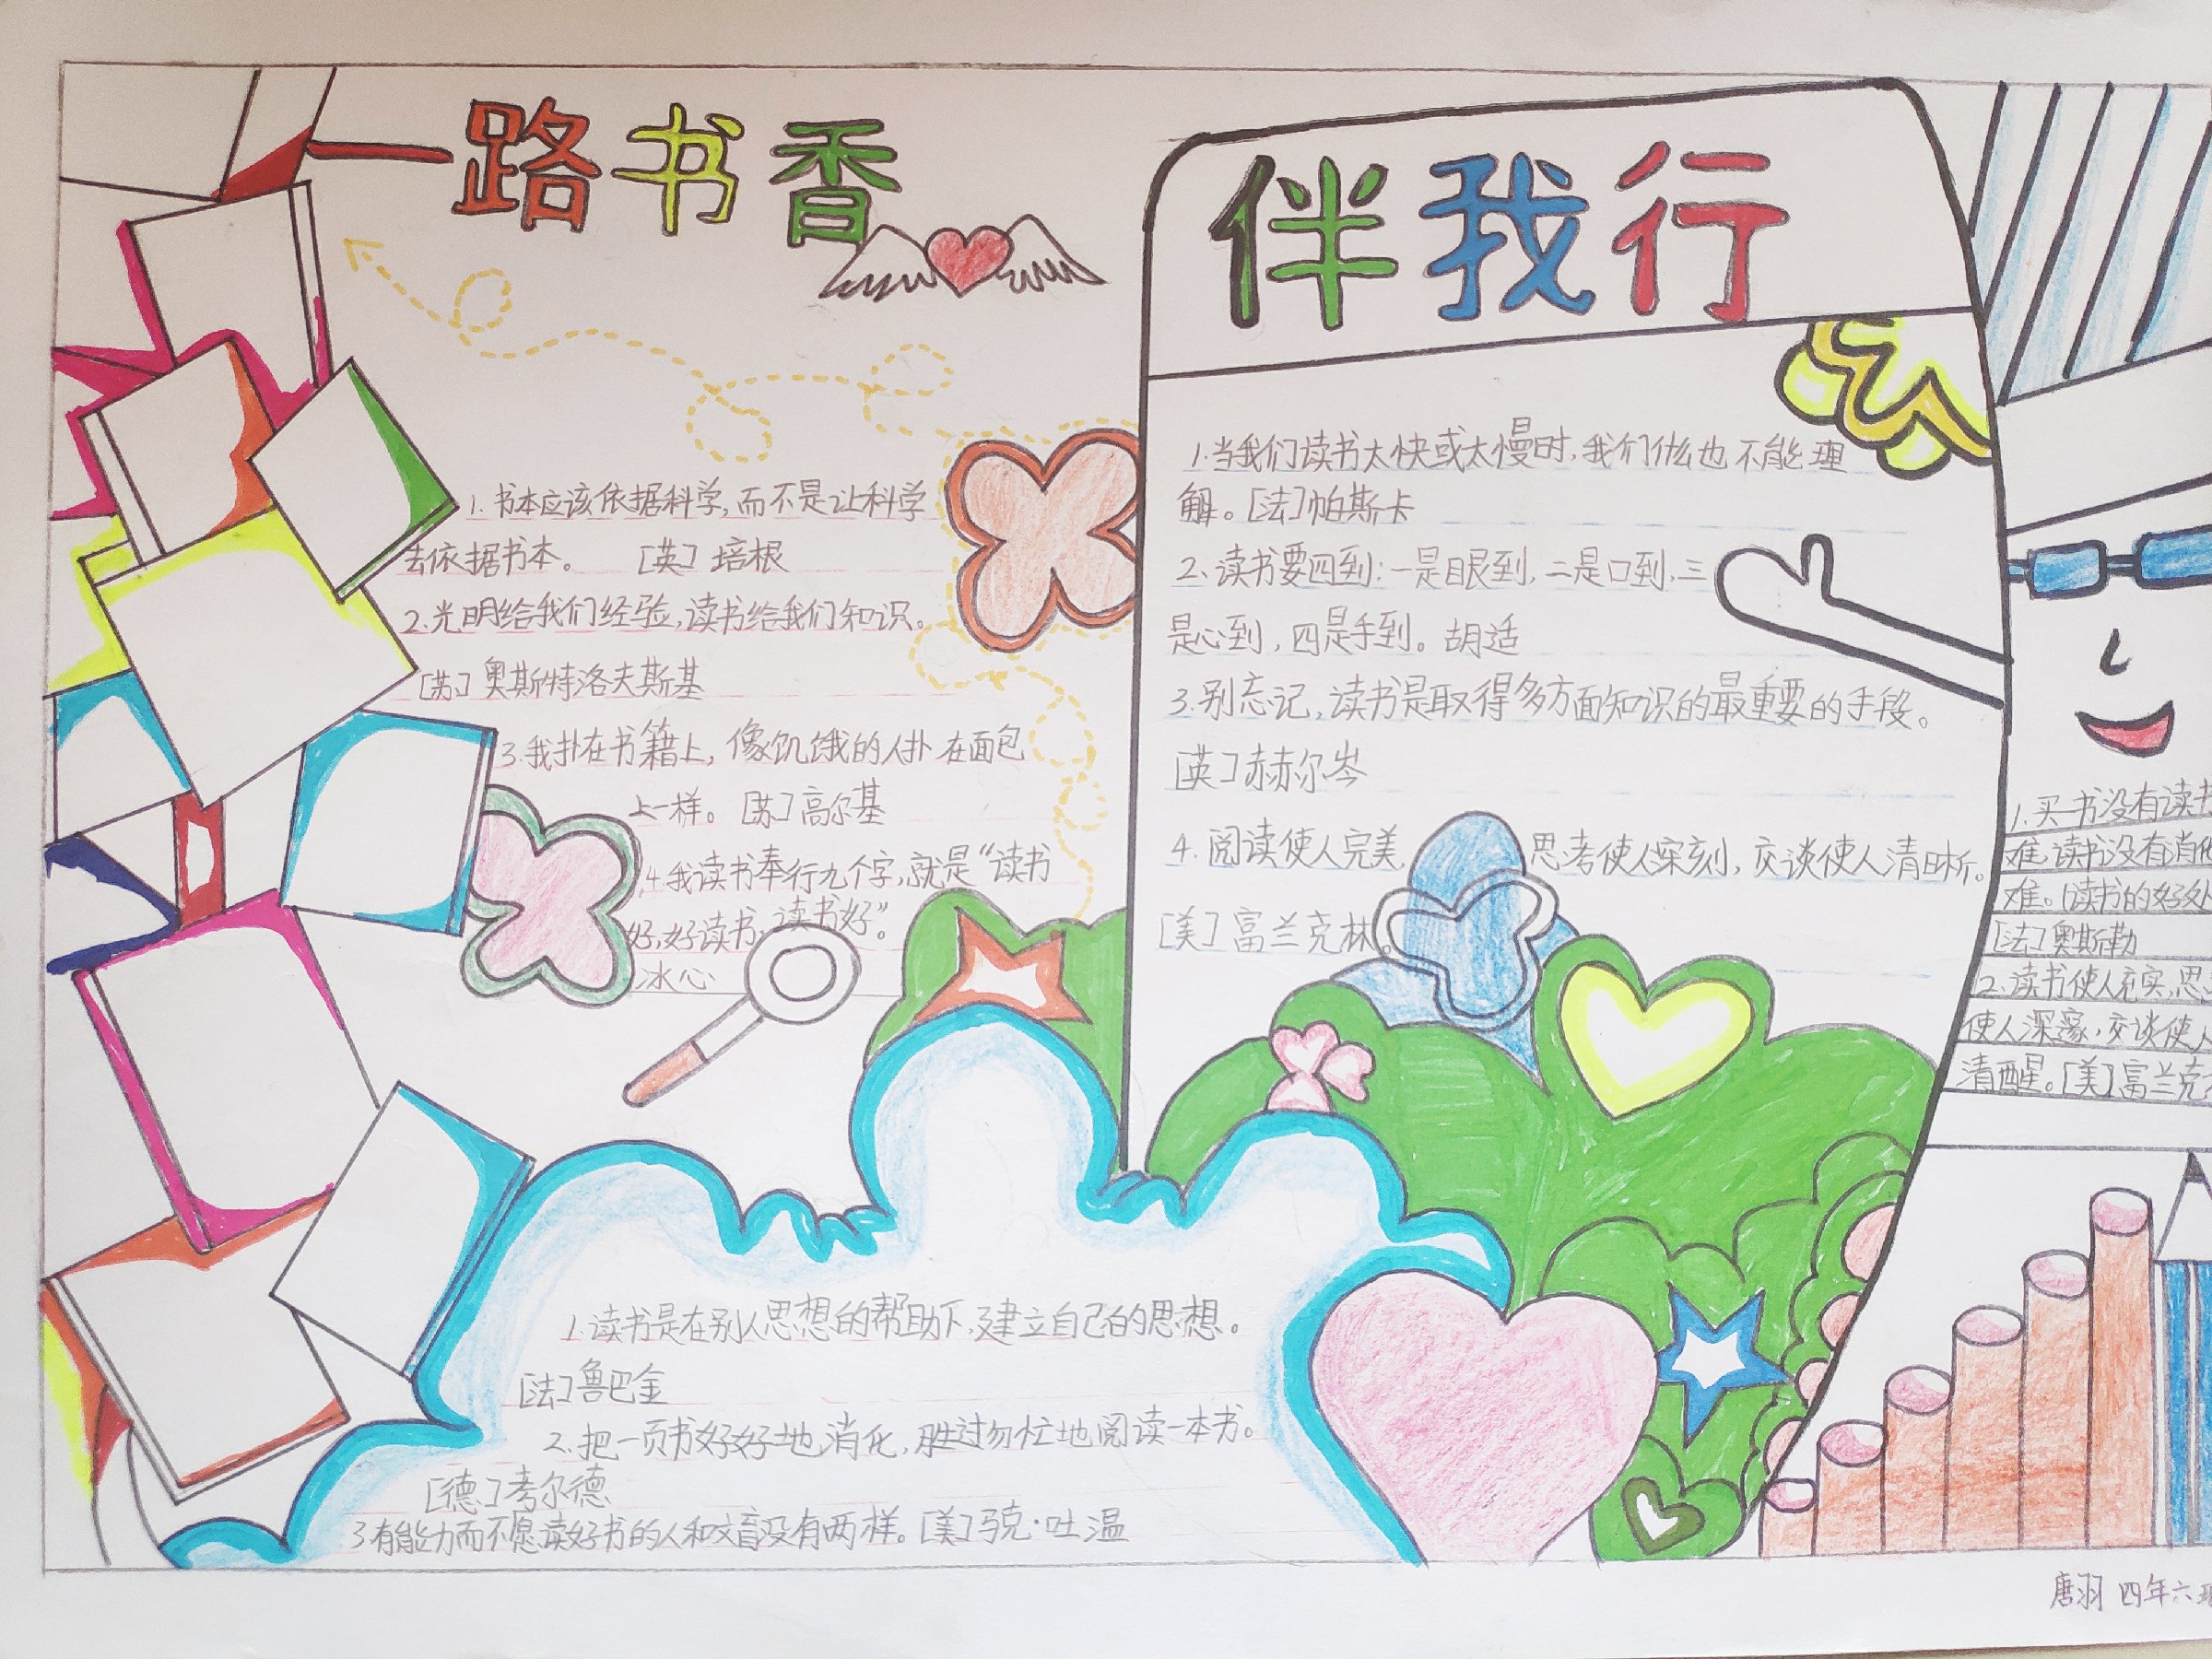 一路书香
伴我行
1.书本应该依据科学,而不是让科学
去依据书本。 [英]培根
2.光明给我们经验,读书给我们知识。
[苏]奥斯特洛夫斯基
3.我扑在书籍上,像饥饿的人扑在面包
上一样。[苏]高尔基
4.我读书奉行九个字,就是“读书
好,好读书,读书好”。
冰心
1.当我们读书太快或太慢时,我们什么也不能理
解。[法]帕斯卡
2、读书要四到:一是眼到,二是口到,三
是心到,四是手到。胡适
3.别忘记,读书是取得多方面知识的最重要的手段。
[英]赫尔岑
4.阅读使人完美,思考使人深刻,交谈使人清晰。
[美]富兰克林。
1.买书没有读书
难,读书没有消化
难。(读书的好处
[法]奥斯勒
2.读书使人充实,思
使人深邃,交谈使人
清醒。[美]富兰克
1.读书是在别人思想的帮助下,建立自己的思想。
[法]鲁巴金
2.把一页书好好地消化,胜过匆忙地阅读一本书。
[德]考尔德
3有能力而不愿读好书的人和文盲没有两样。[美]马克·吐温
唐羽 四年六